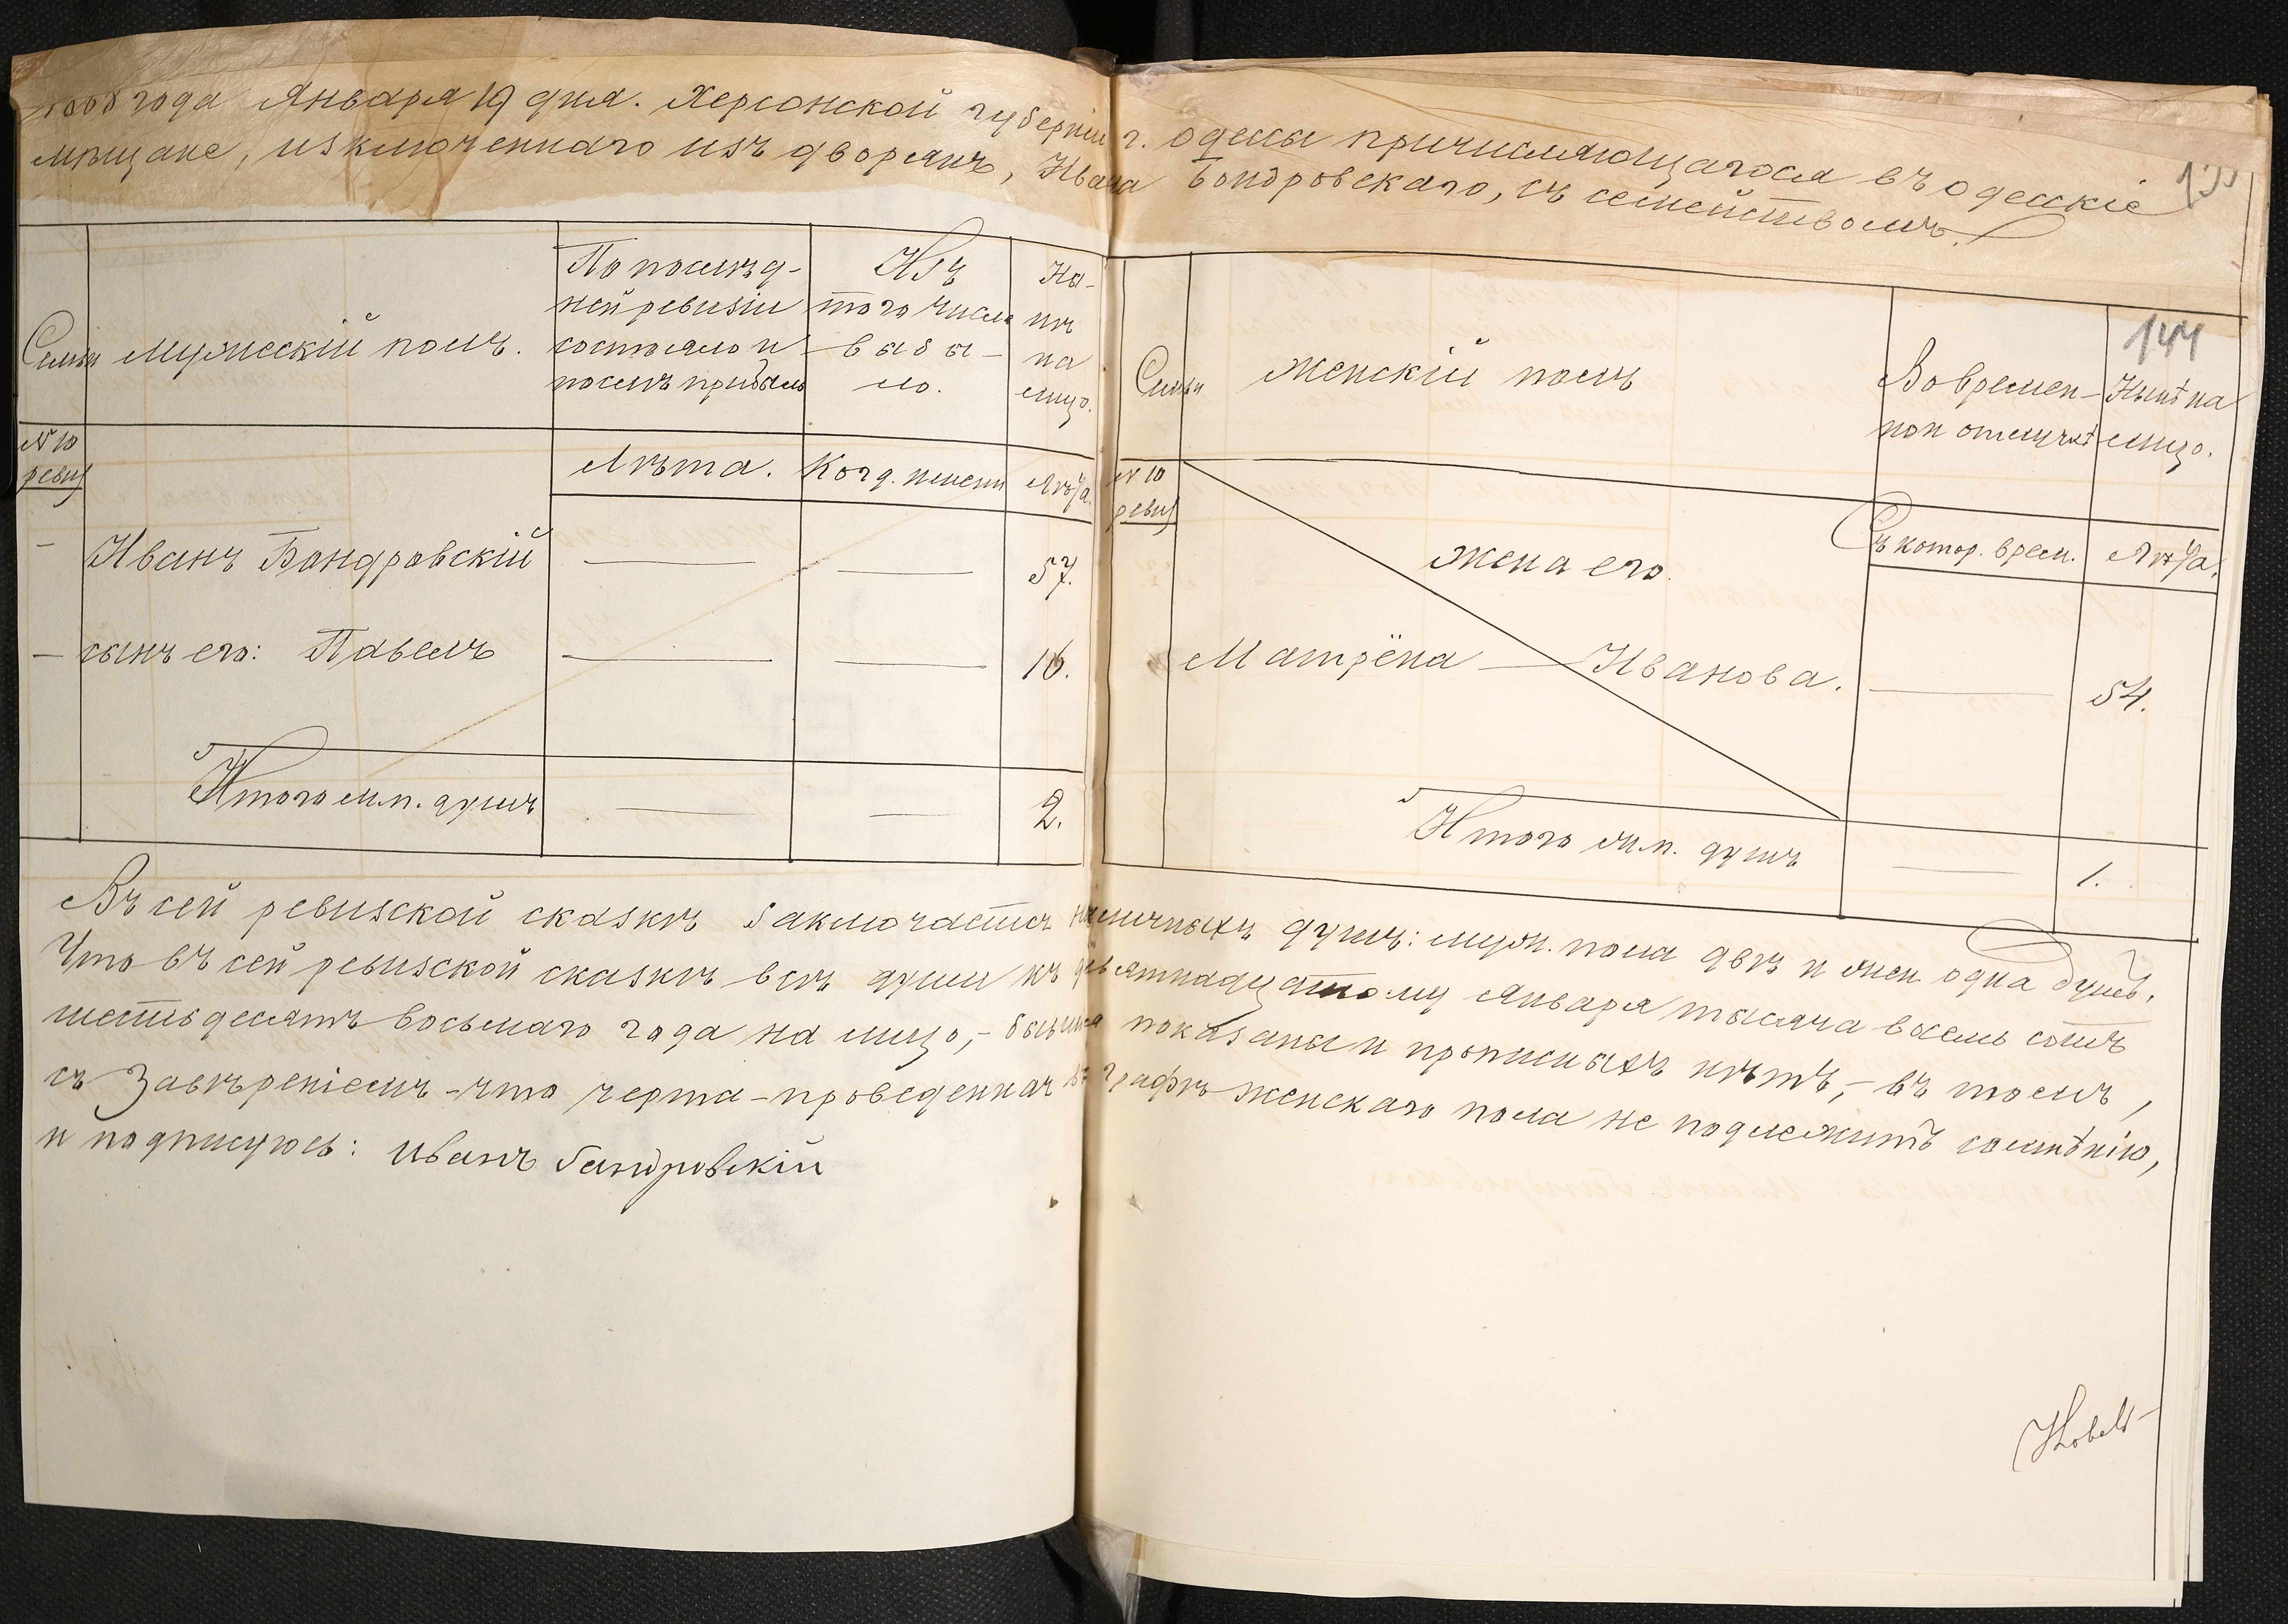 1868 года Января 19 дня. Херсонской губерніи г. Одессы причисляющагося въ одесскіе
мѣщане, изключеннаго изъ дворянъ, Ивана Бондровскаго, съ семействомъ.
144
Семьи
Мужескій полъ.
По послѣд-
ней ревизіи
состояло и
послѣ прибыло
Изъ
того числа
выбы-
ло.
Ны-
нѣ
на
лицо.
№ 10
ревиз
Лѣта.
Когд. именно
Лѣта.
— Иванъ Бондровскій — — 57.
— сынъ его: Павелъ — — 16.
Итого м.п. душъ — — 2.
Семьи
Женскій полъ
Во времен-
ной отлучкѣ
Нынѣ на
лицо.
№ 10
ревиз
Съ котор. врем.
Лѣта.
Жена его.
Матрёна — Иванова. — 54.
Итого ж.п. душъ — 1.
Въ сей ревизской сказкѣ заключается наличныхъ душъ: муж. пола двѣ и жен одна душъ.
Что въ сей ревизской сказкѣ всѣ души къ девятнадцатому Января тысяча восемь сотъ
шестьдесятъ восьмаго года на лицо, - показаны и прописныхъ нѣтъ, - въ томъ,
съ Завѣреніемъ - что черта - проведенная въ графѣ женскаго пола не подлежитъ сомнѣнію,
и подписуюсь: Иванъ Бандровскій